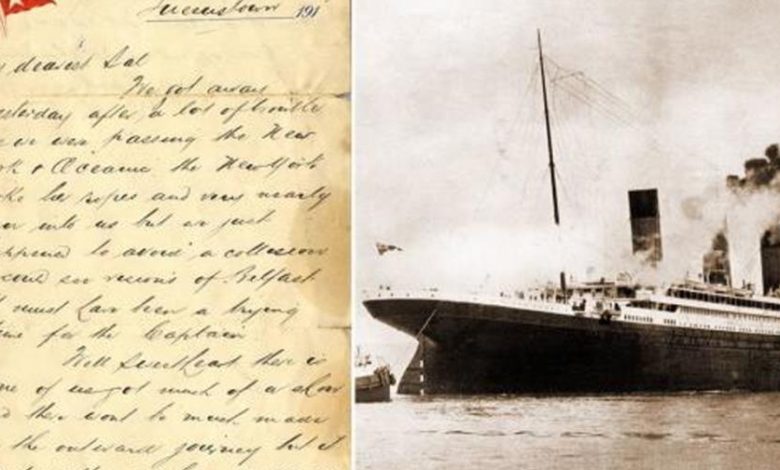 Queenstown 191
dearest Sal
We got away
esterday after a lot of trouble
we were passing the New
rk & Oceanic the New York
oke her ropes and very nearly
into us but we just
appened to avoid a collision
of Belfast
t must have been a trying
me for the Captain
Well Sweetheart there is
ne of us got much of a show
d there wont be much made
the outward journey but it